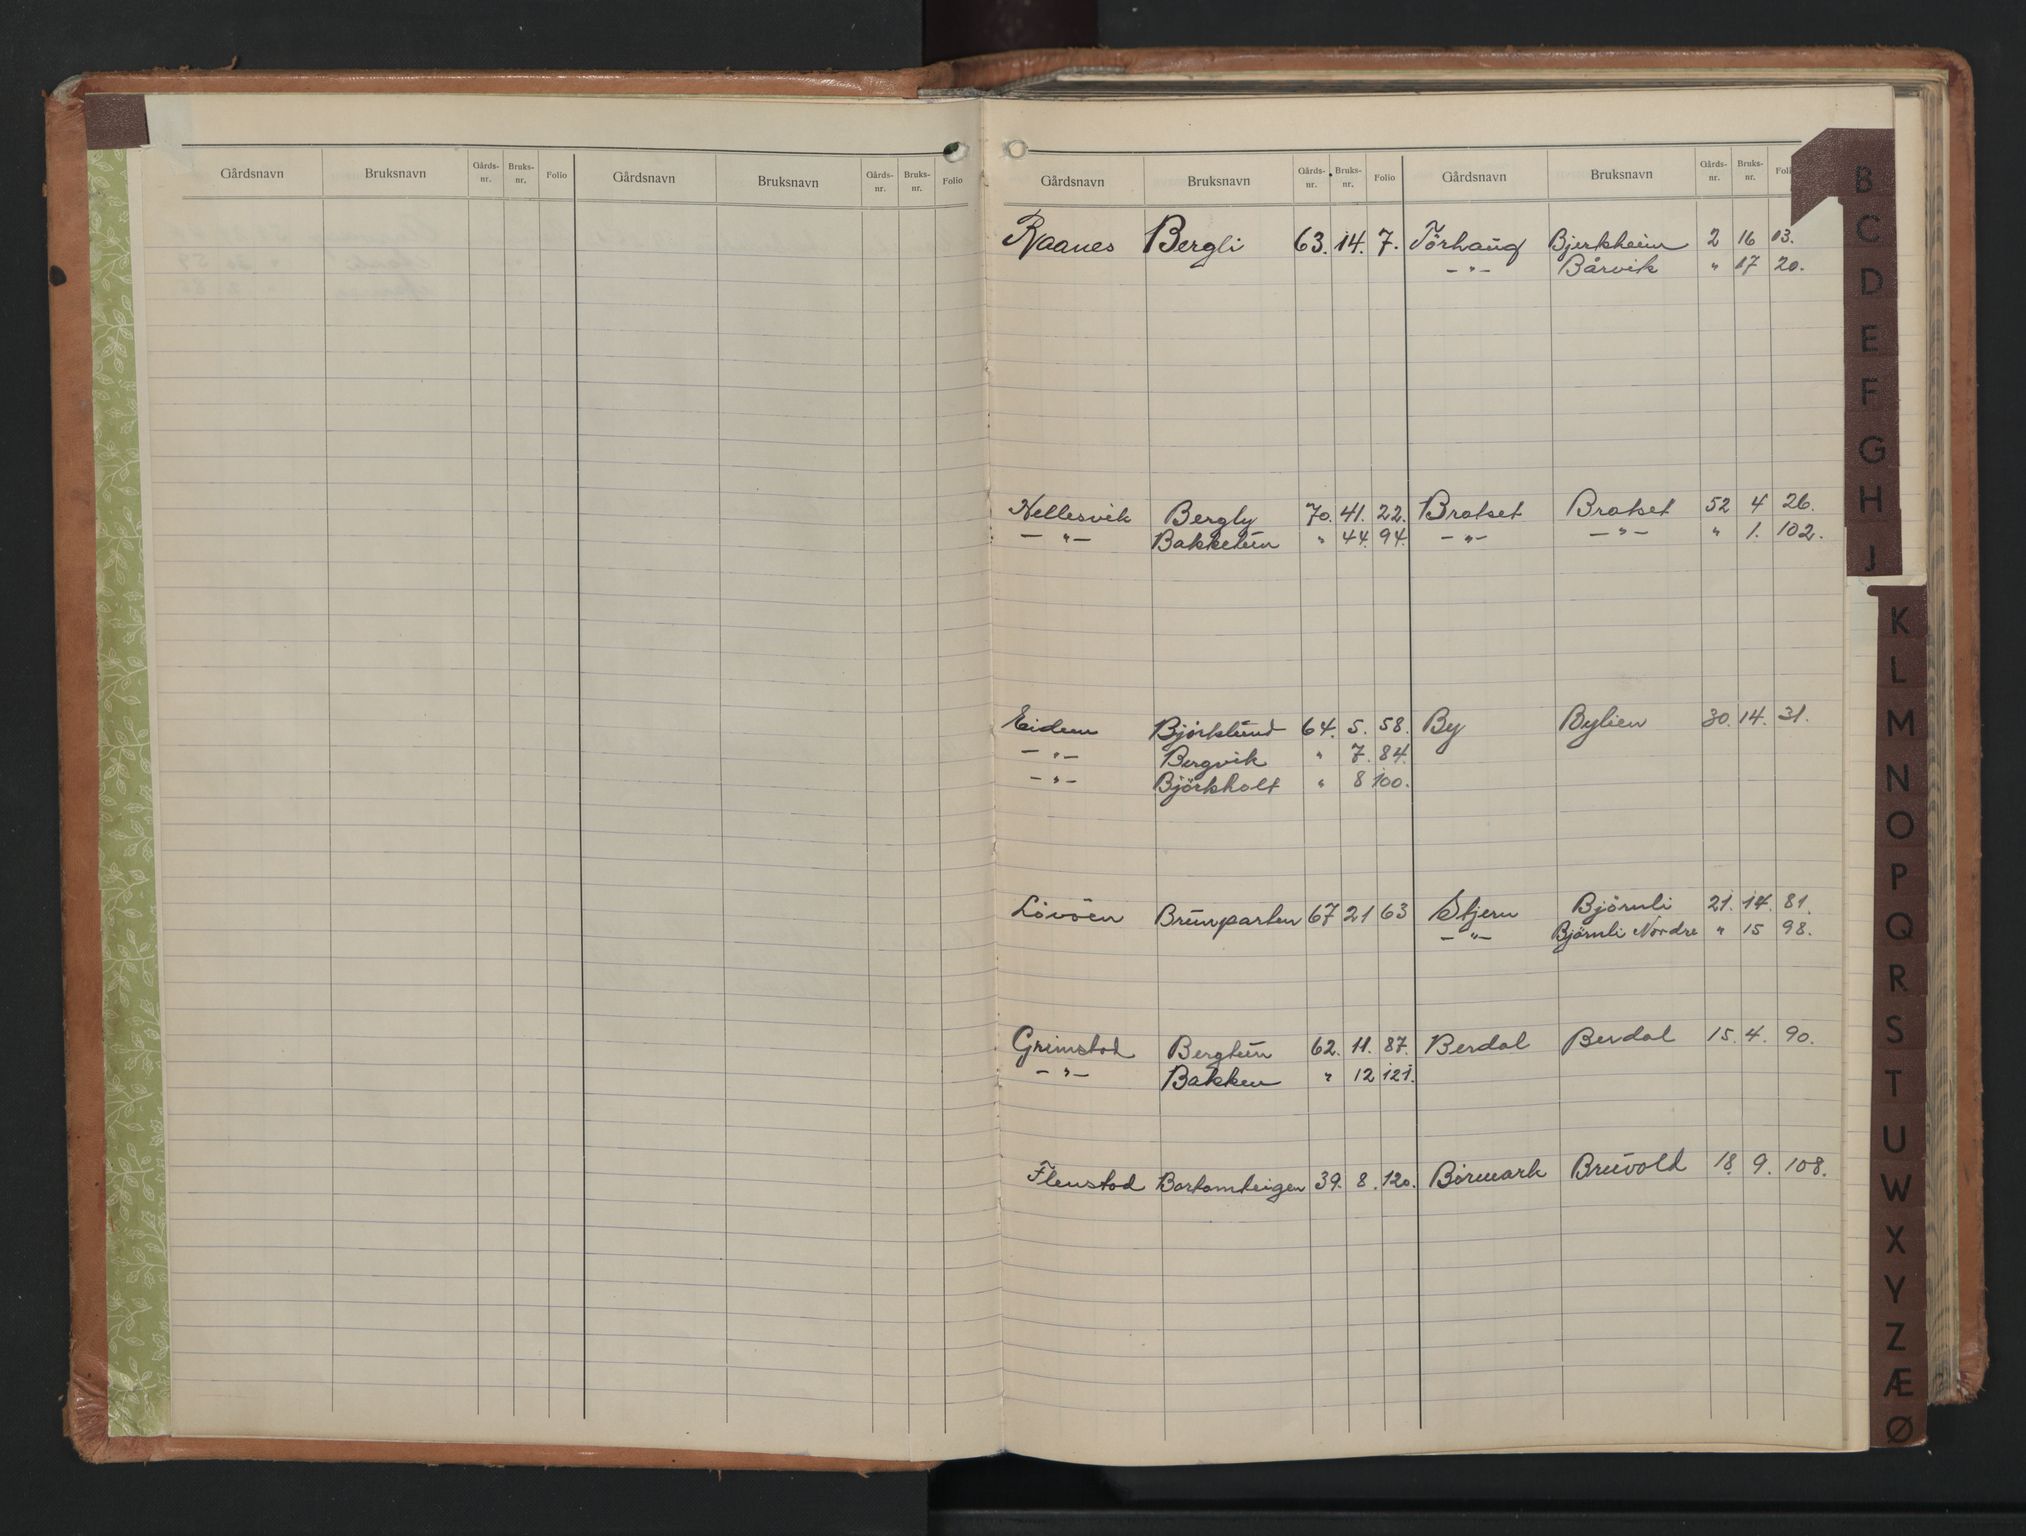 Gårdsnavn Bruksnavn Gårds-nr. Bruks-nr. Folio Gårdsnavn Bruksnavn Gårds-nr. Bruks-nr. Folio
Gårdsnavn Bruksnavn Gårds-nr. Bruks-nr. Folio Gårdsnavn Bruksnavn Gårds-nr. Bruks-nr.
Raanes Bergli 63. 14. 7. Törhaug Bjerkheim 2 16 13.
— " — Bårvik " 17 20.
Nellesvik Bergly 70. 41. 22. Bratset Bratset 52 4 26.
— " — Bakketun " 44. 94. — " — — " — " 1. 102.
Eidem Björklund 64. 5. 58. By Bylien 30. 14. 31.
— " — Bergvik " 7. 84.
— " — Björkholt " 8 100.
Lövöen Brunparten 67 21 63 Stjern Björnli 21. 14. 81.
— " — Björnli Nordre " 15 98.
Grimstad Bergtun 62. 11. 87. Berdal Berdal 15. 4. 90.
— " — Bakken " 12 121.
Flenstad Bortomteigen 39. 8. 120. Börmark Bruvold 18. 9. 108.
B
C
D
E
F
G
H
J
K
L
M
N
O
P
Q
R
S
T
U
W
X
Y
Z
Æ
Ø